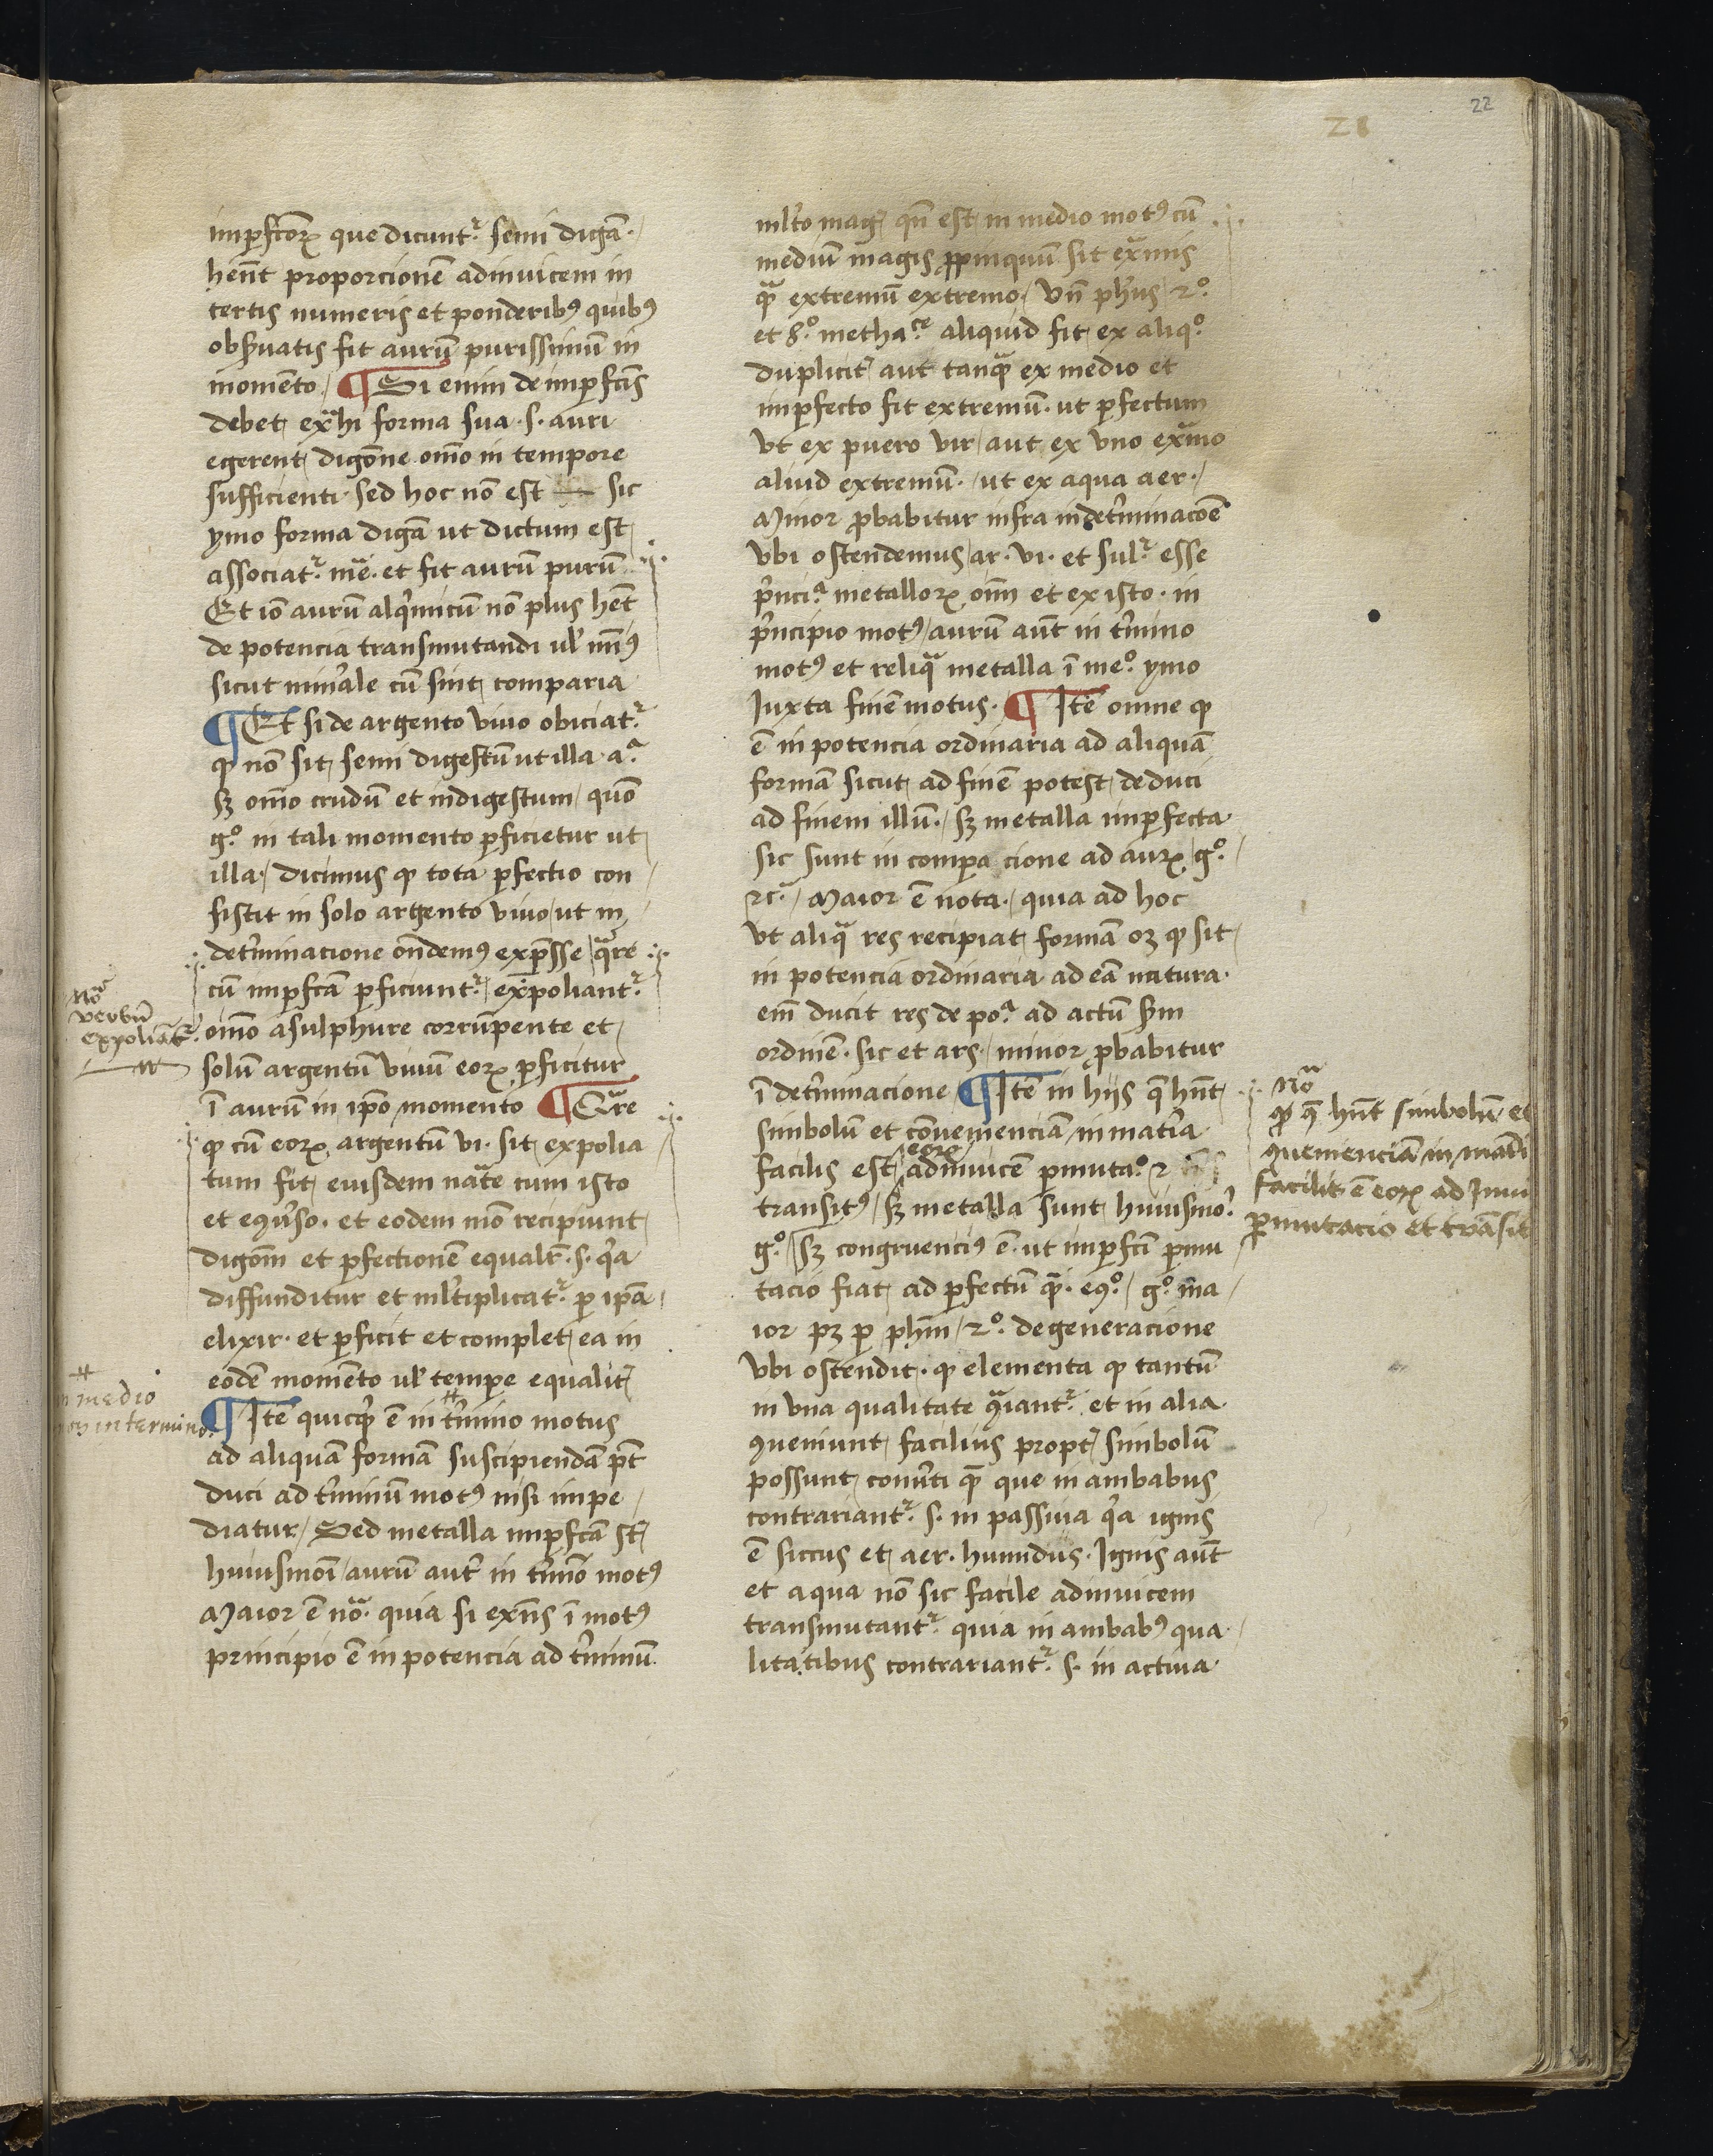 22
21
imp̱fcōꝝ que dicuntʳ semi digā.
hēnt proporcionē adinuicem in
certis numeris et ponderibꝰ quibꝰ
obṣuatis fit aurū purissimū in
momēto / ¶ Si enim de imp̱fcīs
debet exͣhi forma sua .s. auri
egerent digōne om̄o in tempore
sufficienti. Sed hoc nō est — sic
ymo forma digā ut dictum est
associatʳ mē. et fit aurū purū
Et iō aurū alqͥmicū nō plus hēt
de potencia transmutandi ul̓ mīꝰ
sicut min̓ale cū sint comparia
¶ Et si de argento viuo obiciatʳ
ꝙ nō sit semi digestū ut illa .aͣ
sꝫ om̄o crudū et indigestum / quō
gͦ in tali momento ꝑficietur ut
illa / dicimus ꝙ tota ꝑfectio con
sistit in solo argento viuo / ut in
det̓minacione ōndemꝰ exp̄sse / qͣre
cū imꝑfcā ꝑficiuntʳ / expoliantʳ
om̄o a sulphure corrūpente et
solū argentū viuū eoꝝ ꝑficitur
ī aurū in ip̄o momento ¶ Qͣre
ꝙ cū eoꝝ argentū vi. sit expolia
tum fit eiusdem natͤ cum isto
et eqͥuso. et eodem mō recipiunt
digōm et ꝑfectionē equalr̄ .s. qͥa
diffunditur et ml̓tiplicatʳ ꝑ ip̄a
elixir. et ꝑficit et complet ea in
eodē momēto ul̓ tempe equalit̓
¶ Itē quicqͥd ē in t̓mino motus
ad aliquā formā suscipiendā pt̄
duci ad t̓minū motꝰ nisi impe
diatur / Sed metalla imꝑfcā st̄
huiusmōi / aurū aut̓ in t̓mīo motꝰ
Maior ē nōͣ. quia si exn̄s ī motꝰ
principio ē in potencia ad t̓minū
Nōͣ
verbū
expoliātʳ
in medio
non in termino
ml̓to magꝭ qn̄ est in medio motꝰ cū
mediū magis ꝓpinquū sit exͣmis
qͣ extremū extremo / Vn̄ ph̓us / 2ͦ.
et 8ͦ. methaᶜᵉ aliquid fit ex aliqͦ.
duplicit̓ aut tanqͣ ex medio et
imꝑfecto fit extremū. ut ꝑfectum
Vt ex puero vir / aut ex vno exͣmo
aliud extremū. / ut ex aqua aer. /
Minor ꝓbabitur infra in det̓minacōe
vbi ostendemus / ar. vi. et sulʳ esse
pͥnciͣ metalloꝝ oīm et ex isto. in
pͥncipio motꝰ / aurū aūt in t̓mino
motꝰ et reliqͣ metalla ī meͦ. ymo
Iuxta finē motus. ¶ Itē omne ꝙ
ē in potencia ordinaria ad aliquā
formā sicut ad finē potest deduci
ad finem illū. / sꝫ metalla imꝑfecta
sic sunt in compa cione ad auꝝ gͦ.
⁊cͣ. / Maior ē nota. / quia ad hoc
Vt aliqͣ res recipiat formā oꝫ ꝙ sit
in potencia ordinaria ad eā natura.
em̄ ducit res de poͣ ad actū sm̄
ordinē. sic et ars. / minor ꝓbabitur
ī det̓minacione ¶ Itē in hijs q̄ hn̄t
simbolū et cōuenienciā in mat̓ia
eoꝝ
facilis est adinuicē ꝑmutaͦ. ⁊
transitꝰ / sꝫ metalla sunt huiusmoͥ
gͦ. / sꝫ congruenciꝰ ē. ut imꝑfcī ꝑmu
tacio fiat ad ꝑfectū qͣ. eqͦ. / gͦ. ma
ior pꝫ ꝑ ph̓m / 2ͦ. de generacione
Vbi ostendit. ꝙ elementa ꝙ tantū
in vna qualitate ꝗriantʳ et in alia
ꝯueniunt facilius propt̓ simbolū
possunt conu̓ti qͣ que in ambabus
contrariantʳ .s. in passiua qͥa ignis
ē siccus et aer. humidus. Ignis aūt
et aqua nō sic facile adinuicem
transmutantʳ quia in ambabꝰ qua
litatibus contrariantʳ .s. in actiua
Nōͣ
ꝙ q̄ hn̄t simbolū et
ꝯuenienciā in mat̓i
facilit̓ ē eoꝝ ad Inui
ꝑmutacio et trāsit